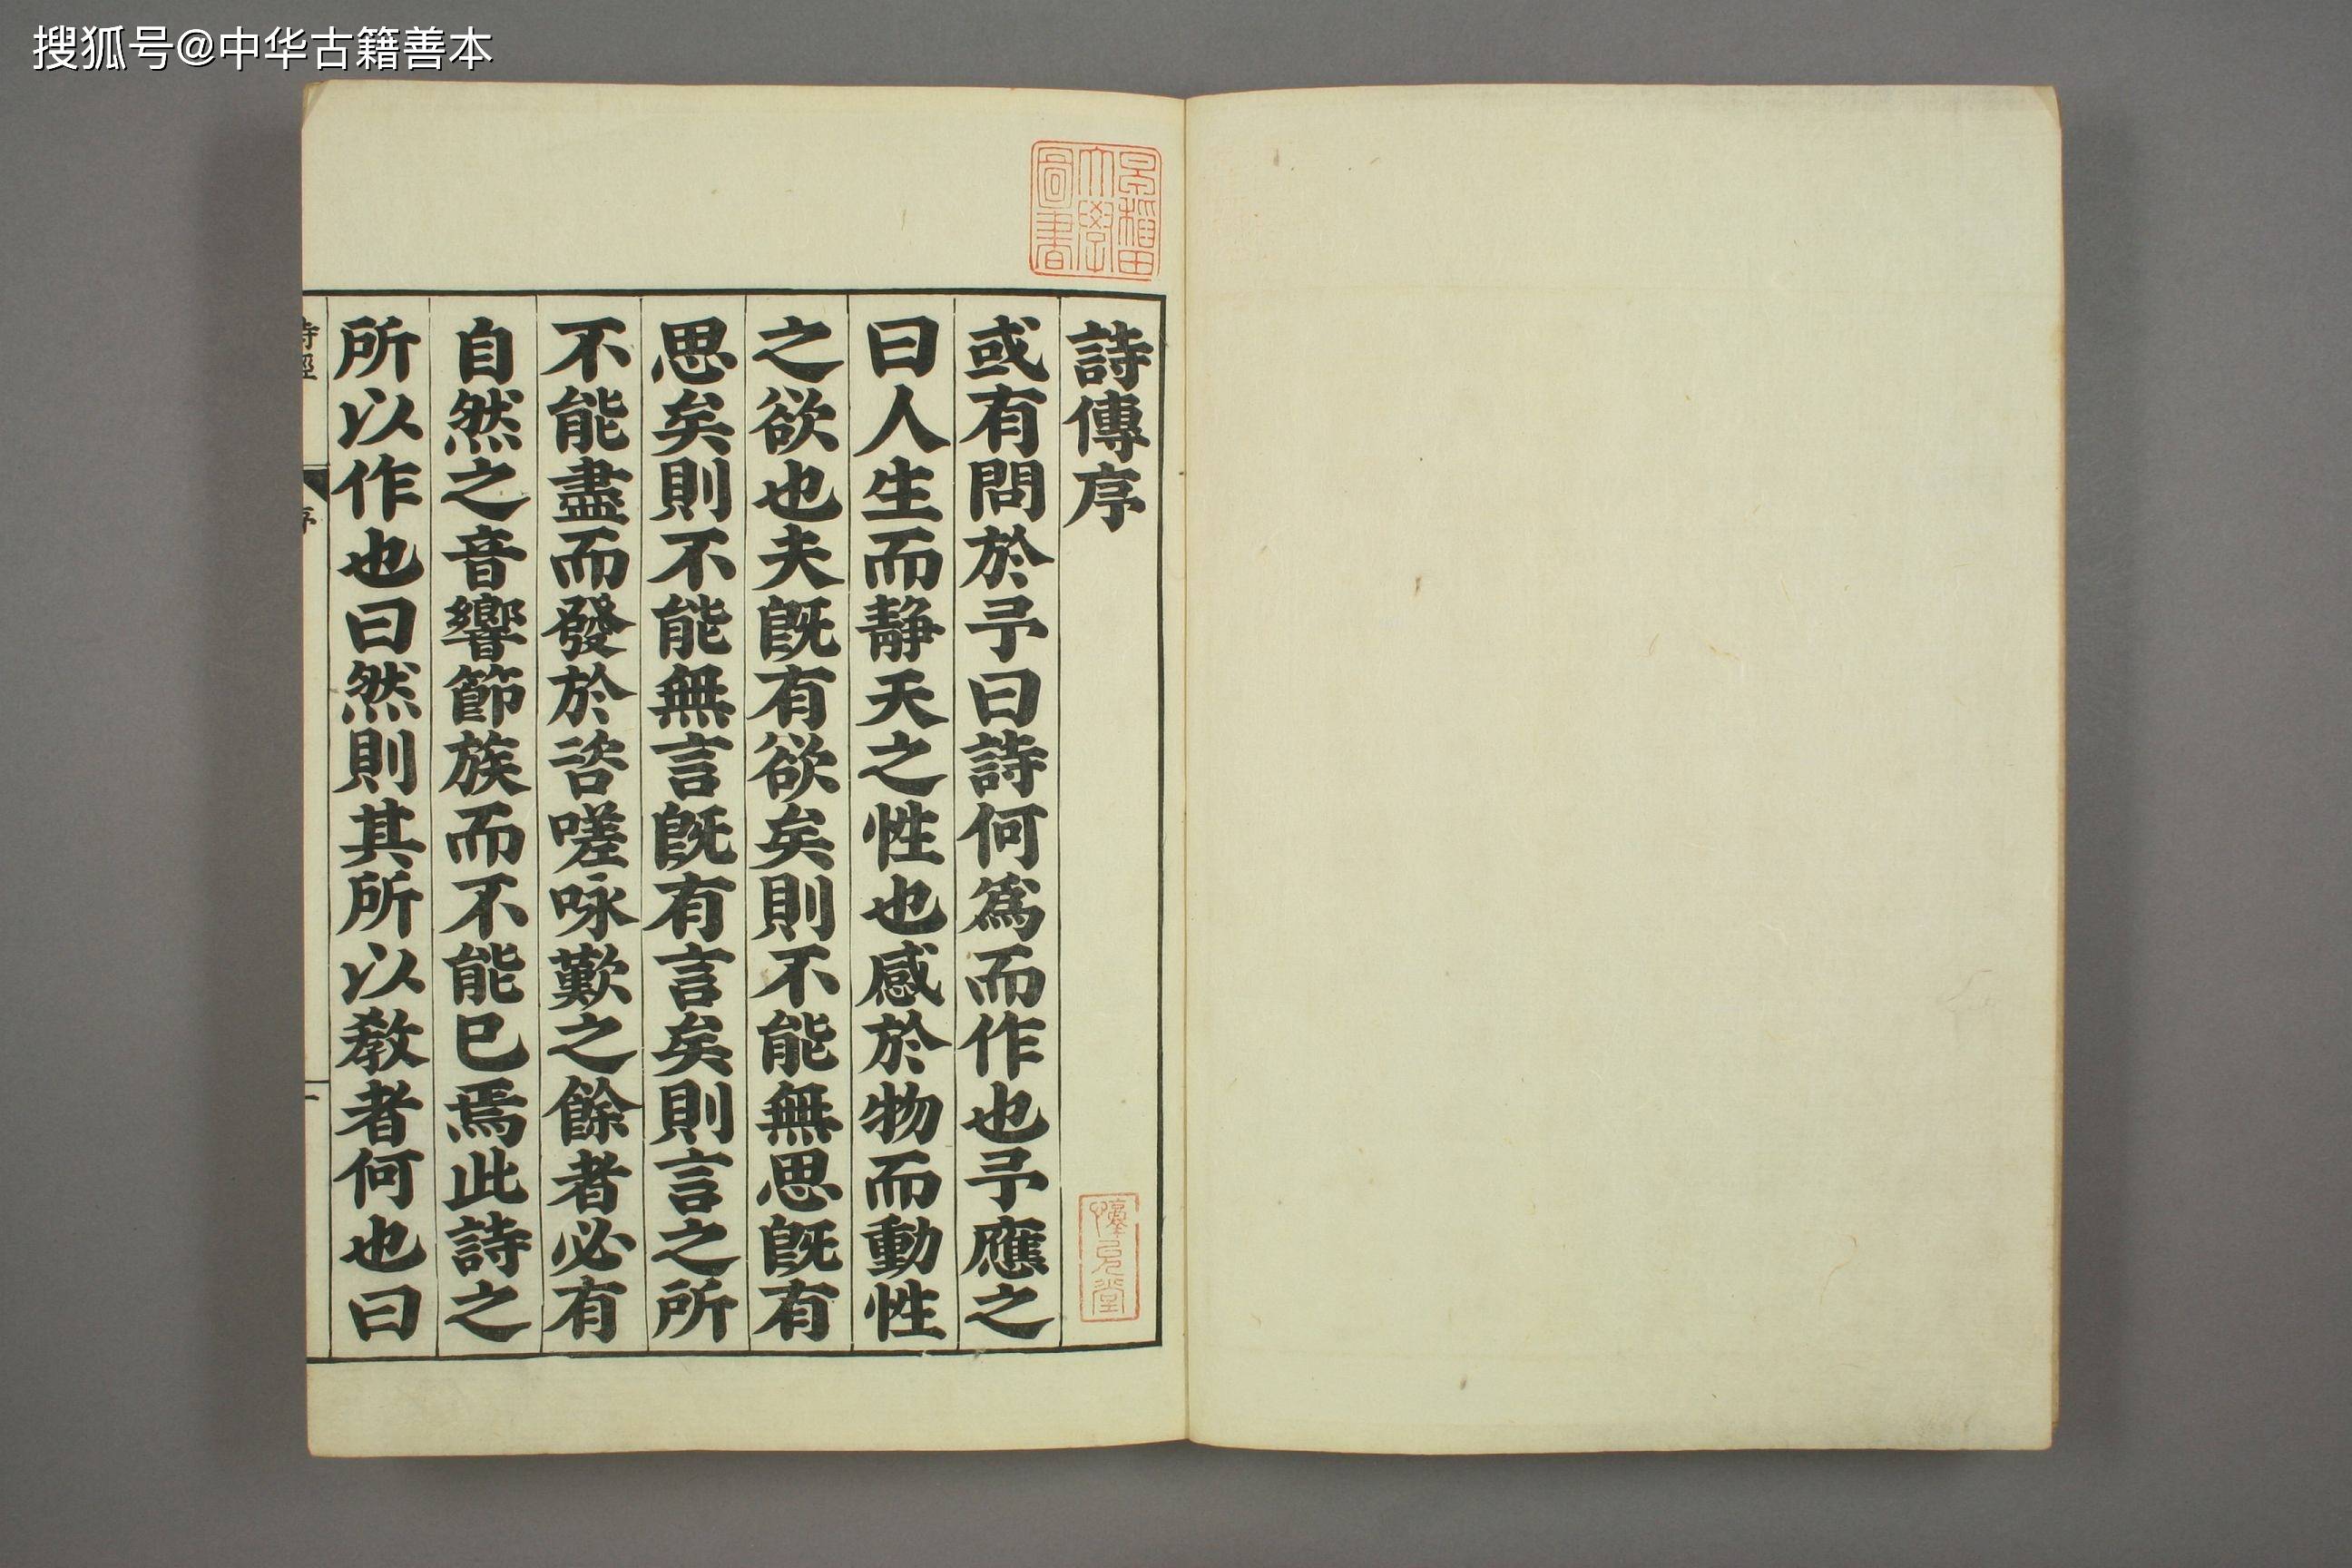 搜狐号@中华古籍善本
早稲田
大學
圖書
詩傳序
或有問於予曰詩何爲而作也予應之
曰人生而靜天之性也感於物而動性
之欲也夫旣有欲矣則不能無思旣有
思矣則不能無言旣有言矣則言之所
不能盡而發於咨嗟咏歎之餘者必有
自然之音響節族而不能已焉此詩之
所以作也曰然則其所以敎者何也曰
詩經
序
一